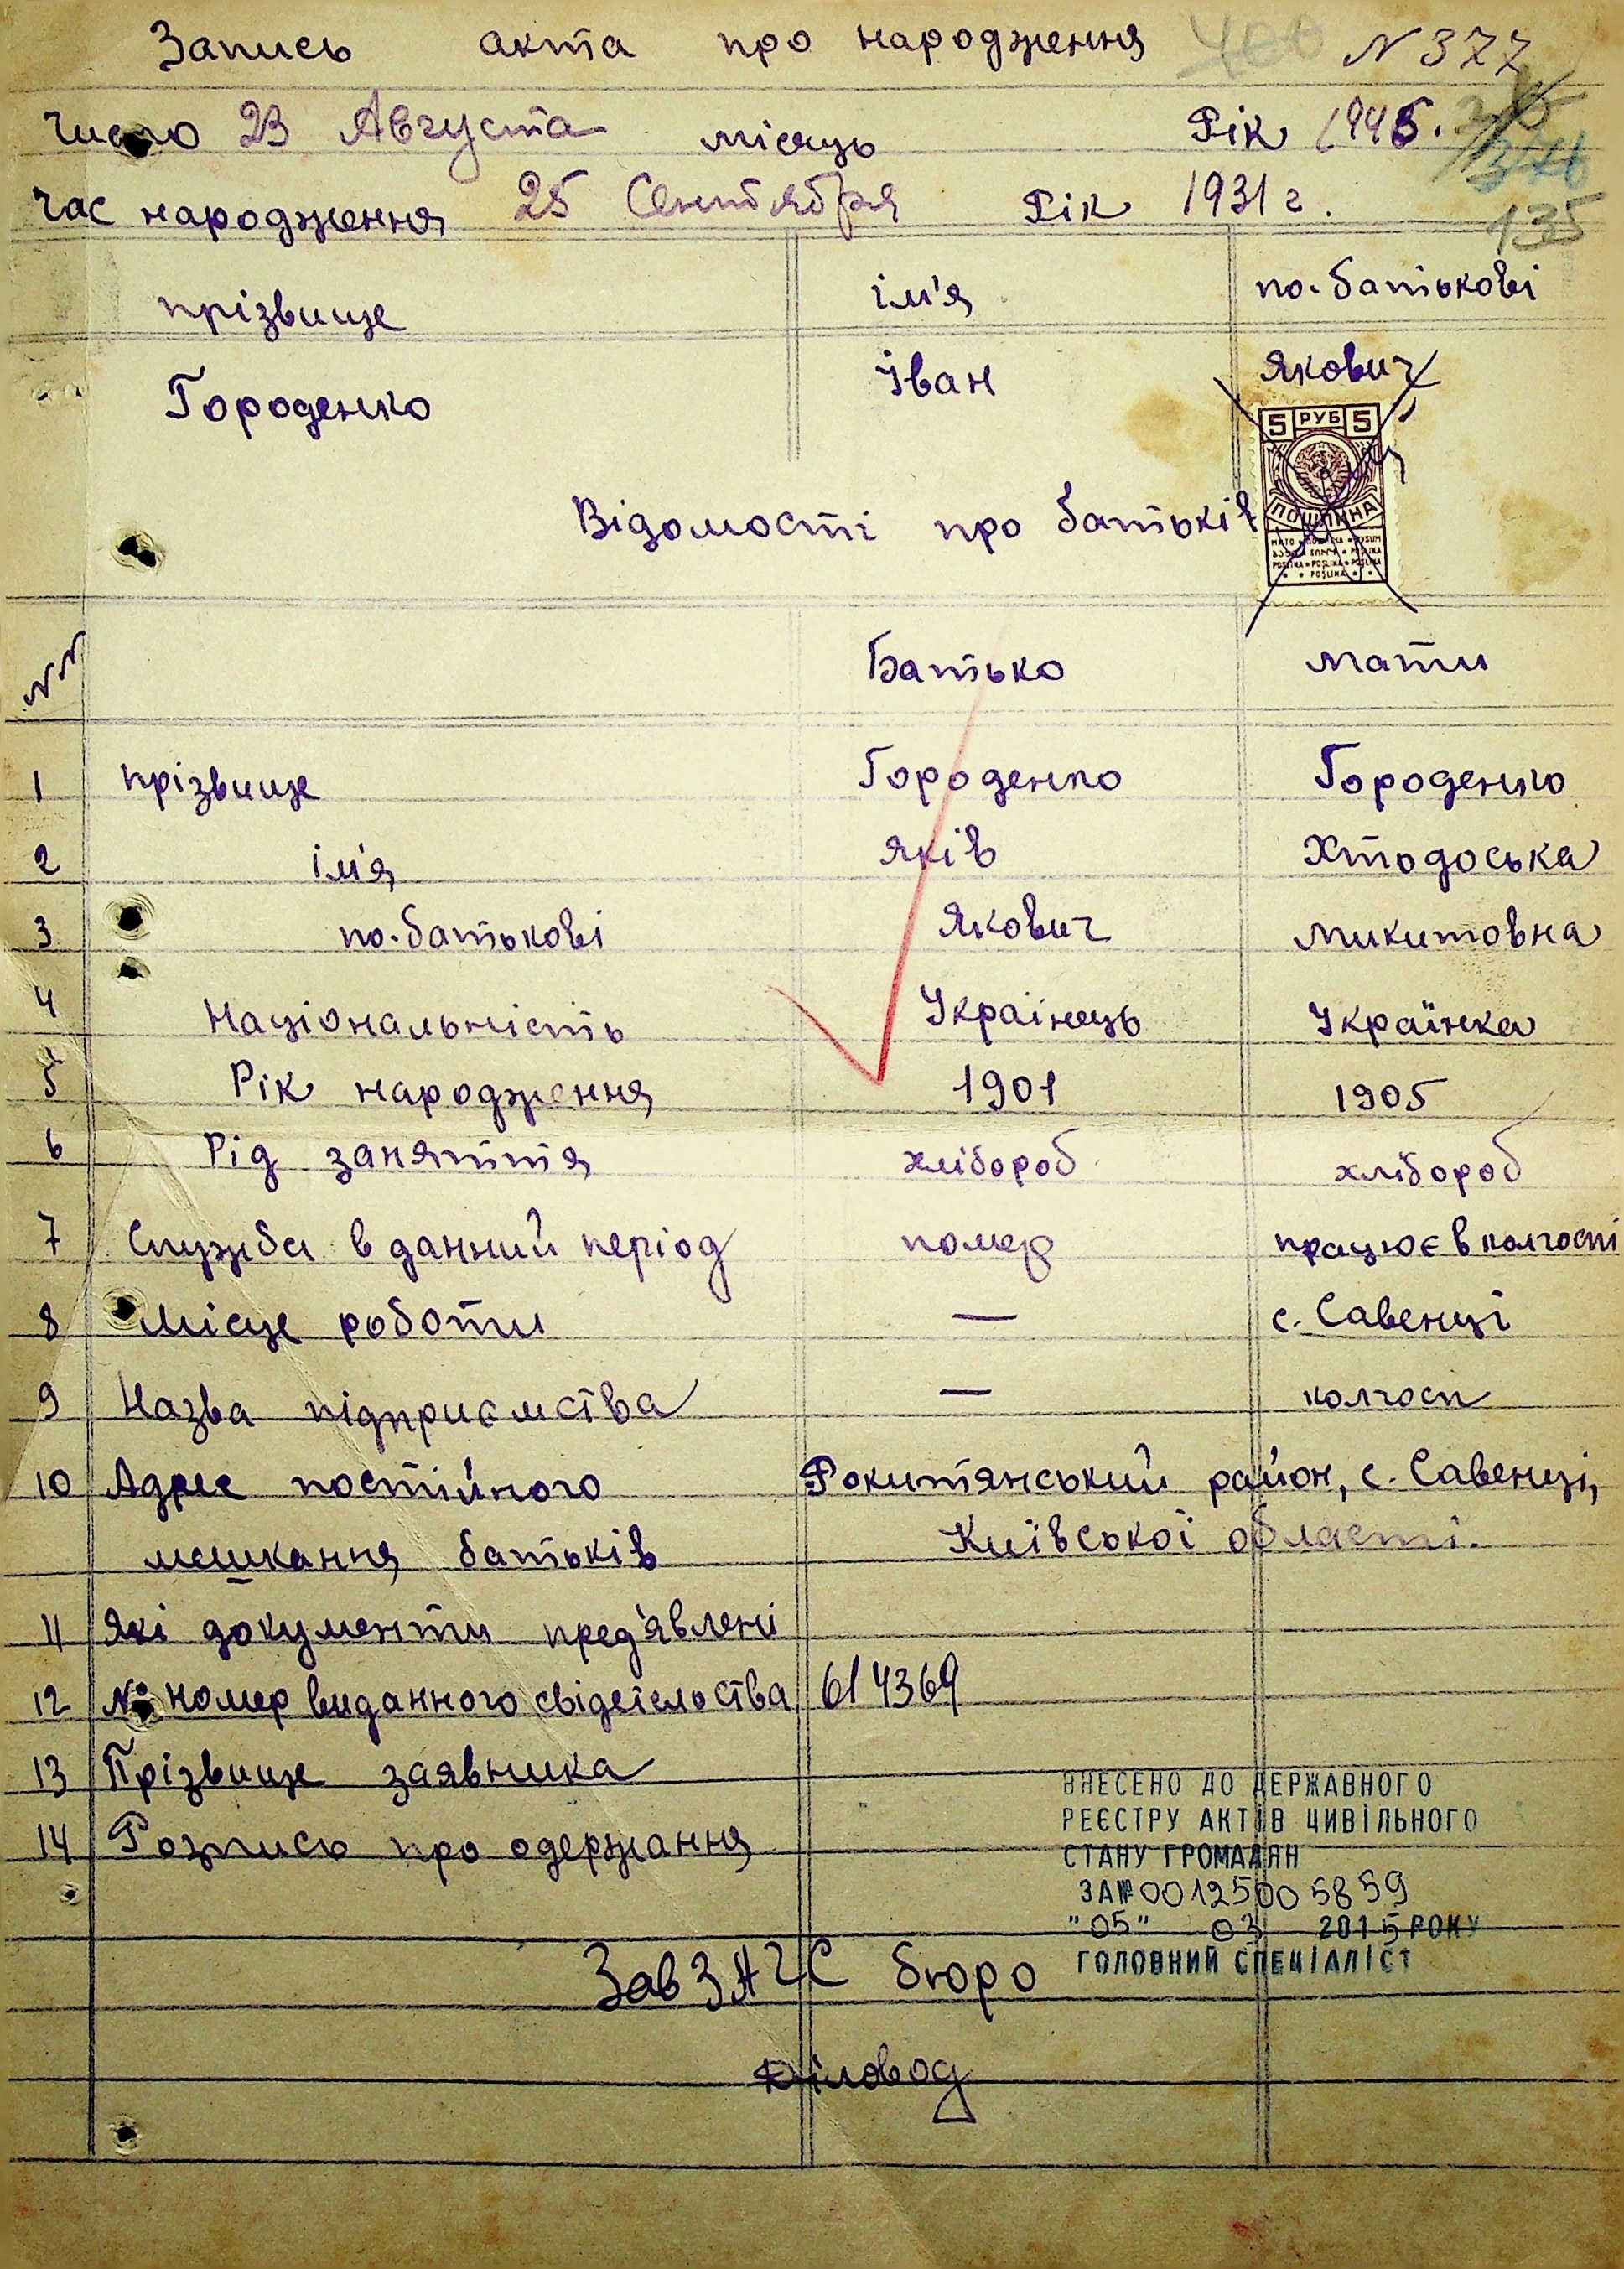 Запись акта про народження 400 N 377
Число 23 Августа місяць Рік 1945.
376
час народження 25 Сентября Рік 1931 г.
135
прізвище ім'я по-батькові
Городенко Іван Якович
5 РУБ 5
ПОШЛИНА
Відомості про батьків
NN Батько мати
1 прізвище Городенко Городенко
2 ім'я Яків Хтодоська
3 по-батькові Якович Микитовна
4 Національність Українець Українка
5 Рік народження 1901 1905
6 Рід заняття хлібороб хлібороб
7 Служба в данний період помер працює в колгоспі
8 Місце роботи — с. Савенці
9 Назва підприємства — колгосп
10 Адрес постійного Рокитянський район, с. Савенці,
мешкання батьків Київської області.
11 Які документи пред'явлені
12 № номер виданного свідетельства 614369
13 Прізвище заявника
14 Розпись про одержання
ВНЕСЕНО ДО ДЕРЖАВНОГО
РЕЄСТРУ АКТІВ ЦИВІЛЬНОГО
СТАНУ ГРОМАДЯН
ЗА № 00125005859
"05" 03 2015 РОКУ
ГОЛОВНИЙ СПЕЦІАЛІСТ
Зав ЗАГС бюро
Діловод